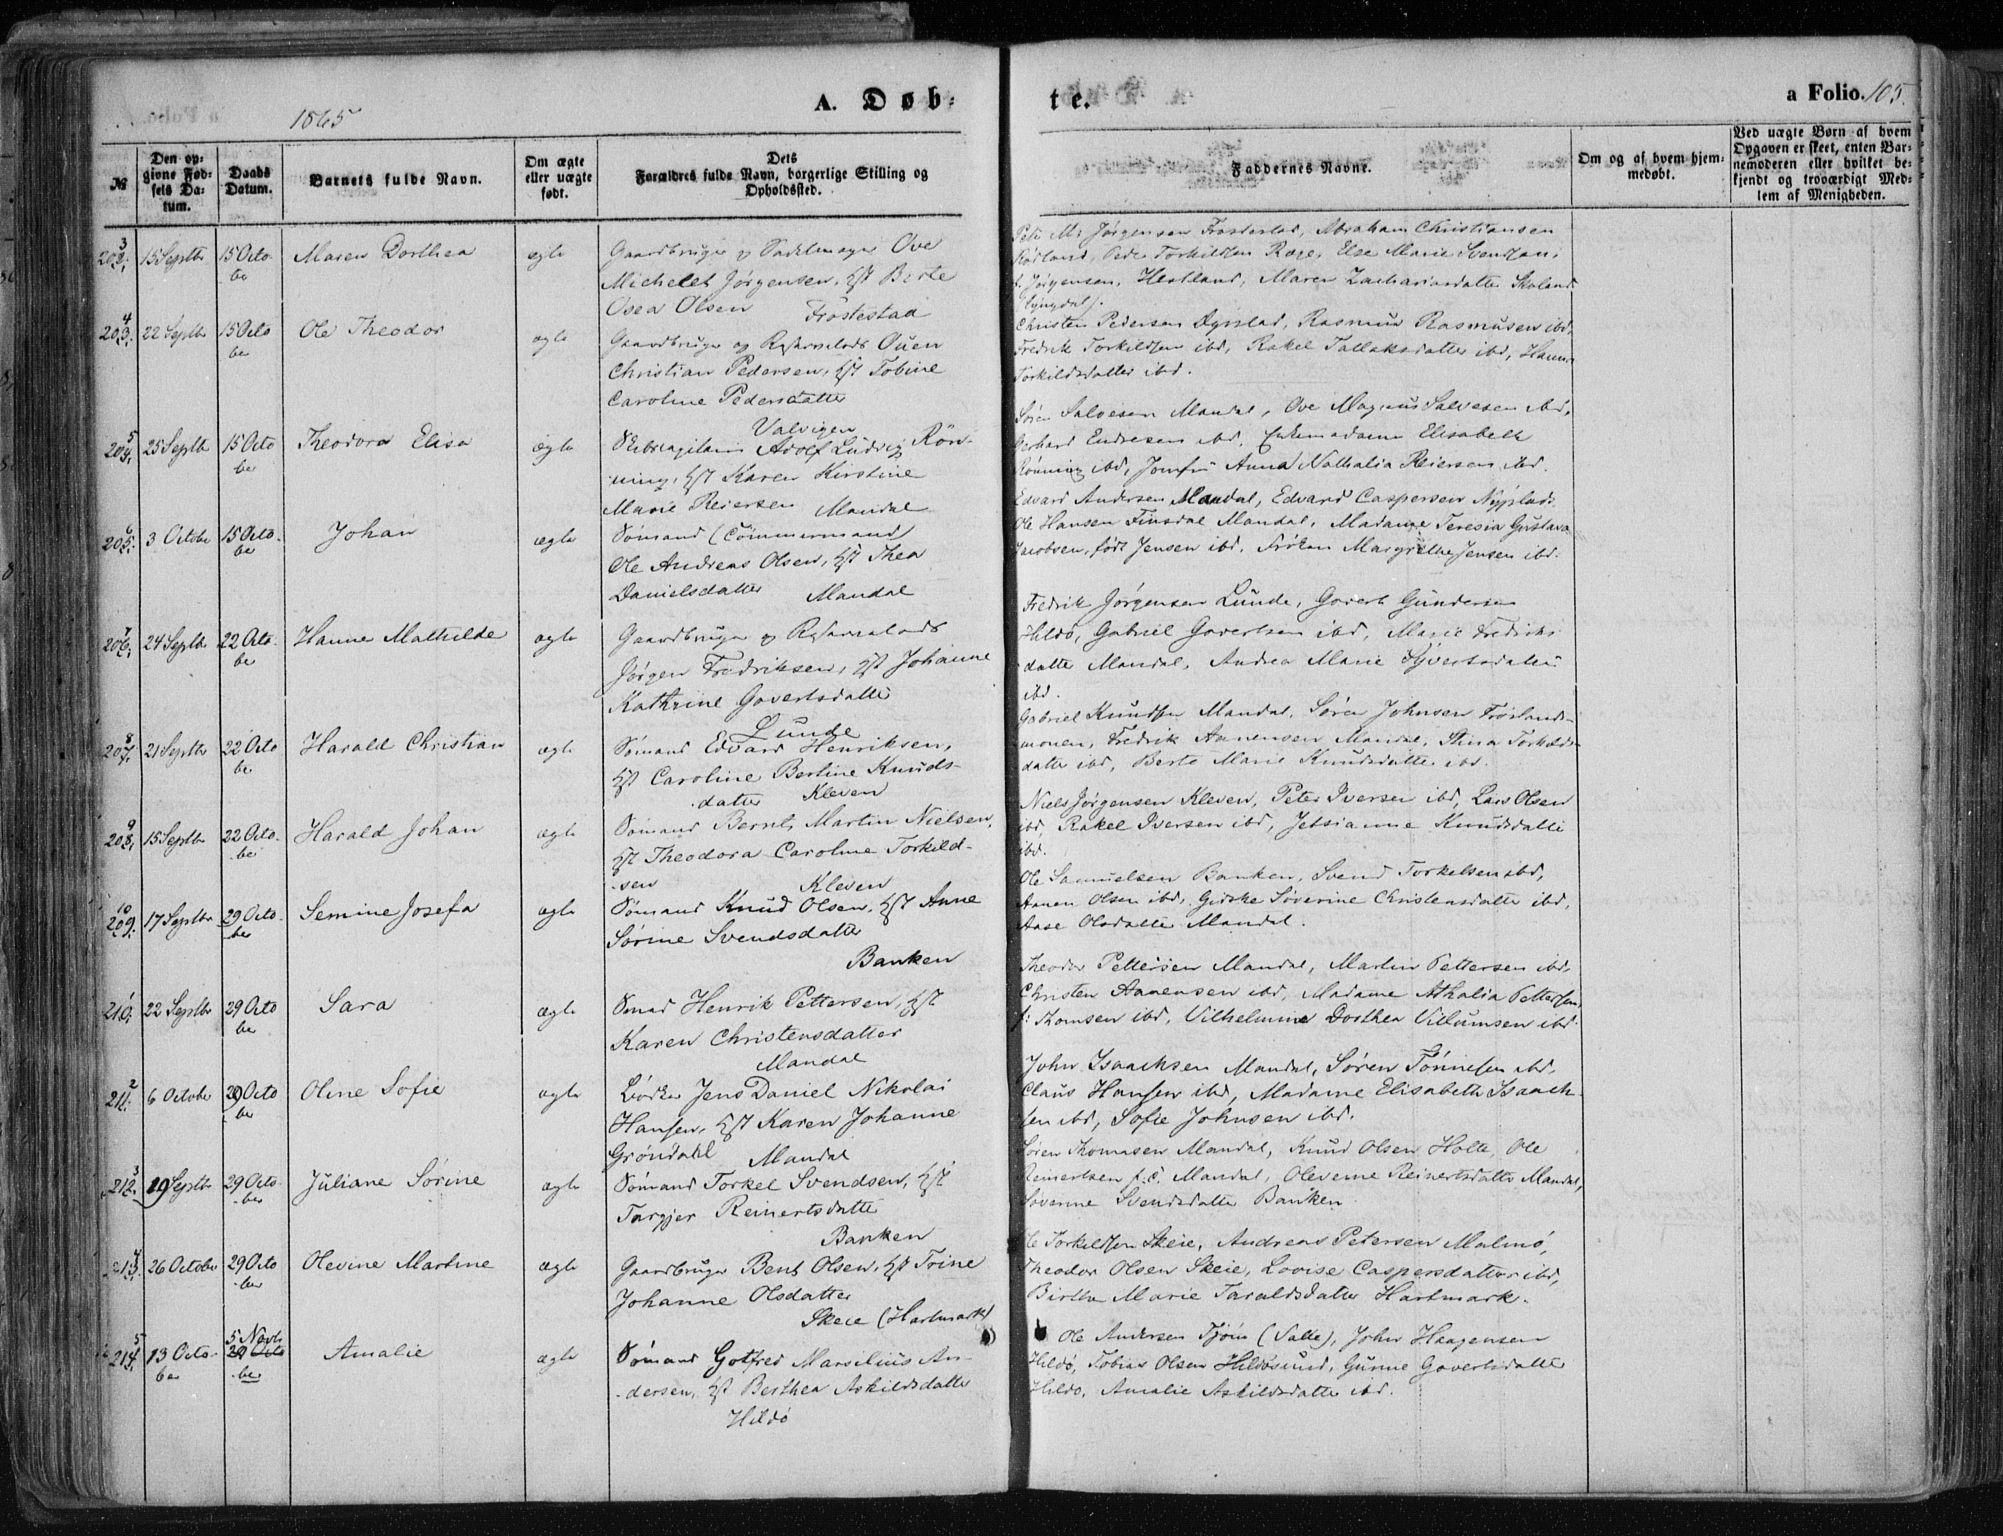 1865
A. Døb-
te.
a Folio. 105.
№
Den op-
givne Fød-
sels Da-
tum.
Daabs
Datum.
Barnets fulde Navn.
Om ægte
eller uægte
født.
Dets
Forældres fulde Navn, borgerlige Stilling og
Opholdssted.
Faddernes Navne.
Om og af hvem hjem-
medøbt.
Ved uægte Børn af hvem
Opgaven er skeet, enten Bar-
nemoderen eller hvilket be-
kjendt og troværdigt Med-
lem af Menigheden.
3
202. 15 Septbr 15 Octo-
ber
Maren Dorthea
ægte
Gaardbruger & Sadelmager Ove
Michelet Jørgensen, Hst Birte
Osea Olsen Frøstestad
Jørgensen Frøstestad, Abraham Christiansen
Peder Torkildsen Røge, Else Marie
Jørgensen, Hestland, Maren Zachariasdatter
Lyngdal.
4
203. 22 Septbr 15 Octo
ber
Ole Theodor
ægte
Gaardbruger og Reservelods Ouen
Christian Pedersen, Hst Tobine
Caroline Pedersdatter
Valvigen
Christen Pedersen Dyrstad, Rasmus Rasmusen ibd,
Fredrik Torkildsen ibd, Rakel Tallaksdatter ibd, Hanne
Torkildsdatter ibd.
5
204. 25 Septbr 15 Octo
ber
Theodora Elisa
ægte
Skibscapitain Adolf Ludvig Rön-
ning, Hst Karen Kirstine
Marie Reiersen Mandal
Søren Salvesen Mandal, Ove Magnus Salvesen ibd,
Gerhard Endresen ibd, Enkemadame Elisabeth
Rönning ibd, Jomfru Anna Nathalia Reiersen ibd.
6
205. 3 Octobr 15 Octo-
ber
Johan
ægte
Sømand (Tömmermand)
Ole Andreas Olsen, Hst Thea
Danielsdatter Mandal
Edvard Andersen Mandal, Edvard Caspersen Nyplads
Ole Hansen Finsdal Mandal, Madame Teresia Gustava
Jacobsen, født Jensen ibd, Frøken Margrethe Jensen ibd.
7
206. 24 Septbr 22 Octo-
ber
Hanne Mathilde
ægte
Gaardbruger & Reservelods
Jørgen Fredriksen, Hst Johanne
Kathrine Govertsdatter
Lunde
Fredrik Jørgensen Lunde, Govert Gundersen
Hildø, Gabriel Govertsen ibd, Marie Fredriks-
datter Mandal, Andrea Marie Syvertsdatter
ibd.
8
207. 21 Septbr 22 Octo
ber
Harald Christian
ægte
Sømand Edvard Henriksen,
Hst Caroline Bertine Knuds-
datter Kleven
Gabriel Knudsen Mandal, Søren Johnsen Frøslands-
monen, Fredrik Aanensen Mandal, Stina Torkelds-
datter ibd, Berte Marie Knudsdatter ibd.
9
208. 15 Septbr 22 Octo-
ber
Harald Johan
ægte
Sømand Bernt Martin Nielsen,
Hst Theodora Caroline Torkild-
sen Kleven
Niels Jørgensen Kleven, Peter Iversen ibd, Lars Olsen
ibd, Rakel Iversen ibd, Jetsianne Knudsdatter
ibd.
10
209. 17 Septbr 29 Octo-
ber
Semine Josefa
ægte
Sømand Knud Olsen, Hst Anne
Sørine Svendsdatter
Banken
Ole Samuelsen Banken, Svend Torkelsen ibd,
Aanen Olsen ibd, Gidske Søverine Christensdatter ibd,
Aase Olsdatter Mandal.
1
210. 22 Septbr 29 Octo
ber
Sara
ægte
Sømand Henrik Pettersen, Hst
Karen Christensdatter
Mandal
Theodor Pettersen Mandal, Martin Pettersen ibd,
Christen Aanensen ibd, Madame Athalia Pettersen,
f: Thomsen ibd, Vilhelmine Dorthea Villumsen ibd.
2
211. 6 October 29 Octo
ber
Oline Sofie
ægte
Bødker Jens Daniel Nikolai
Hansen, Hst Karen Johanne
Grøndahl Mandal
John Isaachsen Mandal, Søren Tønnesen ibd,
Claus Hansen ibd, Madame Elisabeth Isaach-
sen ibd, Sofie Johnsen ibd.
3
212. 19 Septbr 29 Octo-
ber
Juliane Sørine
ægte
Sømand Torkel Svendsen, Hst
Targjer Reinertsdatter
Banken
Søren Thomasen Mandal, Knud Olsen Holte, Ole
Reinertsen Mandal, Olevene Reinertsdatter Mandal,
Soverine Svendsdatter Banken
4
213. 26 October 29 Octo
ber
Olevine Martine
ægte
Gaardbruger Bent Olsen, Hst Trine
Johanne Olsdatter
Skeie (Hartmark)
Ole Torkildsen Skeie, Andreas Petersen Malmø,
Theodor Olsen Skeie, Lovise Caspersdatter ibd,
Birthe Marie Taraldsdatter Hartmark.
5
214. 13 Octo-
ber
5 Novbr
29 Octo
ber
Amalie
ægte
Sømand Gotfred Marselius An-
dersen, Hst Berthea Askildsdatter
Hildø
Ole Andersen Tjøm (Valle), John Haagensen
Hildø, Tobias Olsen Hildøsund, Gunne Govertsdatter
Hildø, Amalie Askildsdatter ibd.